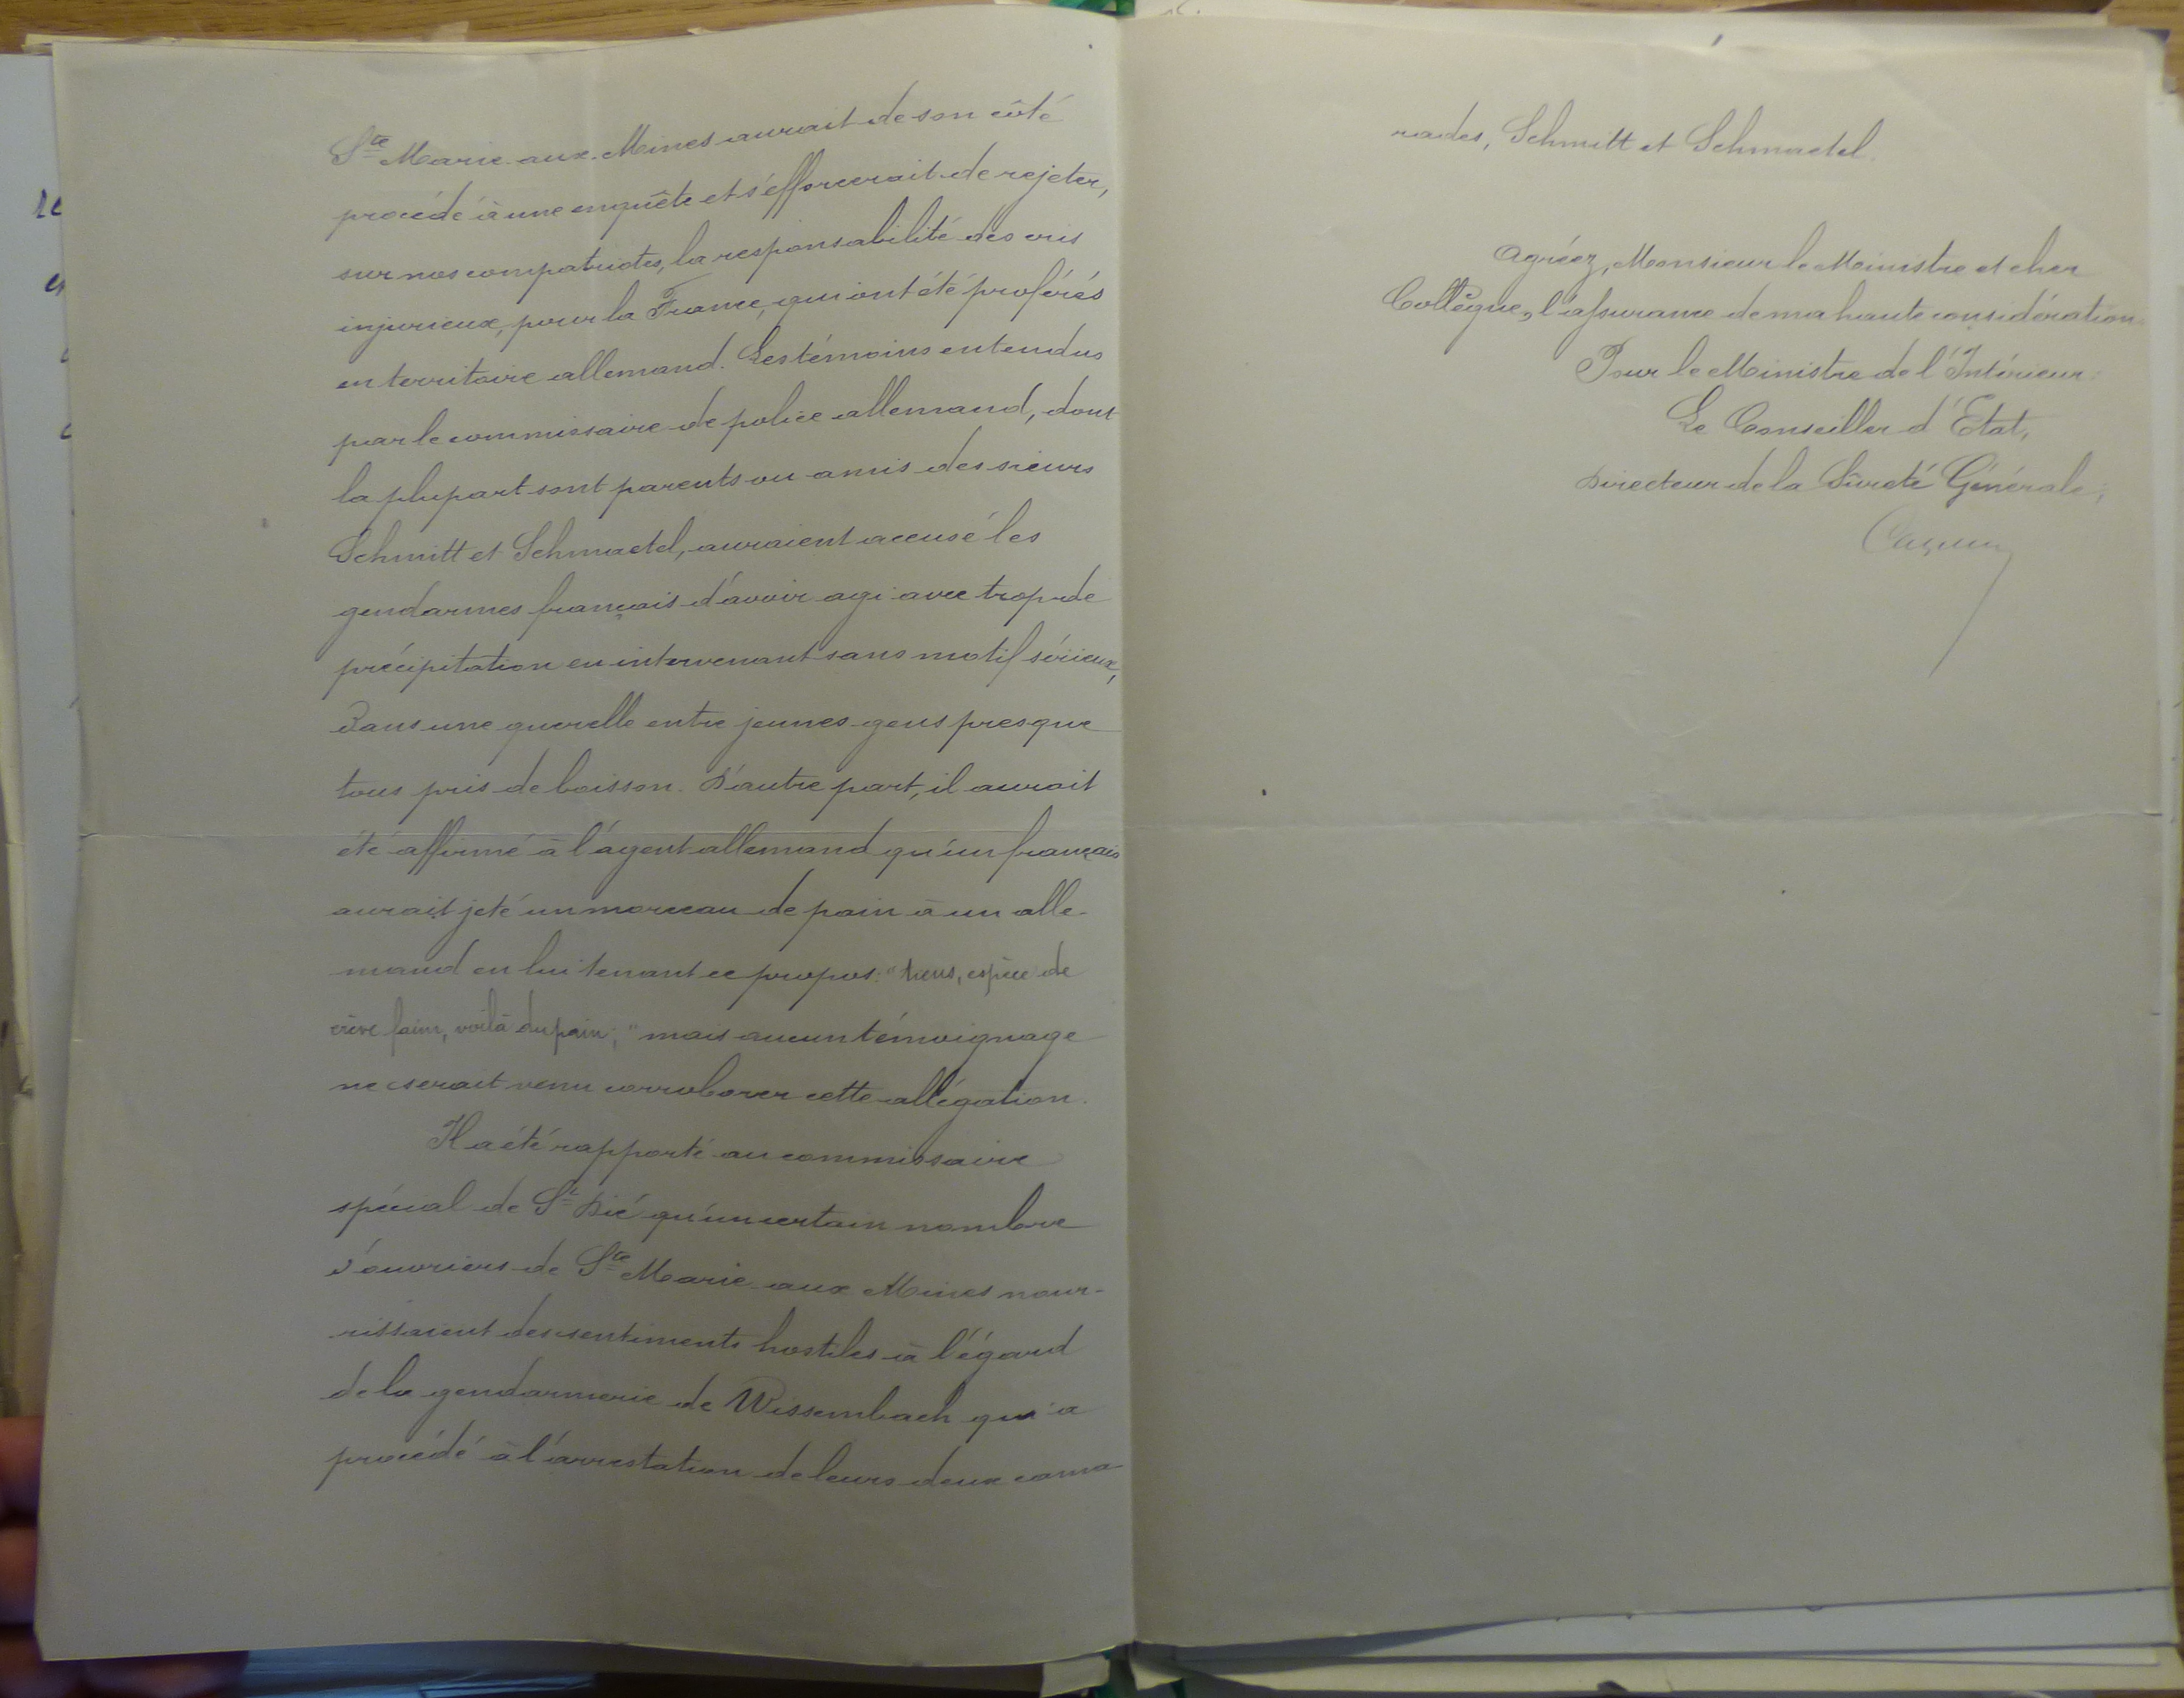 Ste Marie-aux-Mines aurait de son côté
procédé à une enquête et s'efforcerait de rejeter,
sur nos compatriotes, la responsabilité des cris
injurieux, pour la France, qui ont été proférés
en territoire allemand. Les témoins entendus
par le commissaire de police allemand, dont
la plupart sont parents ou amis des sieurs
Schmitt et Schmaedel, auraient accusé les
gendarmes français d'avoir agi avec trop de
précipitation en intervenant sans motif sérieux,
dans une querelle entre jeunes gens presque
tous pris de boisson. D'autre part, il aurait
été affirmé à l'agent allemand qu'un français
aurait jeté un morceau de pain à un alle-
mand en lui tenant ce propos: "tiens, espèce de
crève faim, voilà du pain;" mais aucun témoignage
ne serait venu corroborer cette allégation.
Il a été rapporté au commissaire
spécial de St Dié qu'un certain nombre
d'ouvriers de Ste Marie aux Mines nour-
rissaient des sentiments hostiles à l'égard
de la gendarmerie de Wissembach qui a
procédé à l'arrestation de leurs deux cama-
rades, Schmitt et Schmaedel.
Agréez, Monsieur le Ministre et cher
Collègue, l'assurance de ma haute considération.
Pour le Ministre de l'Intérieur:
Le Conseiller d'Etat,
Directeur de la Sûreté Générale,